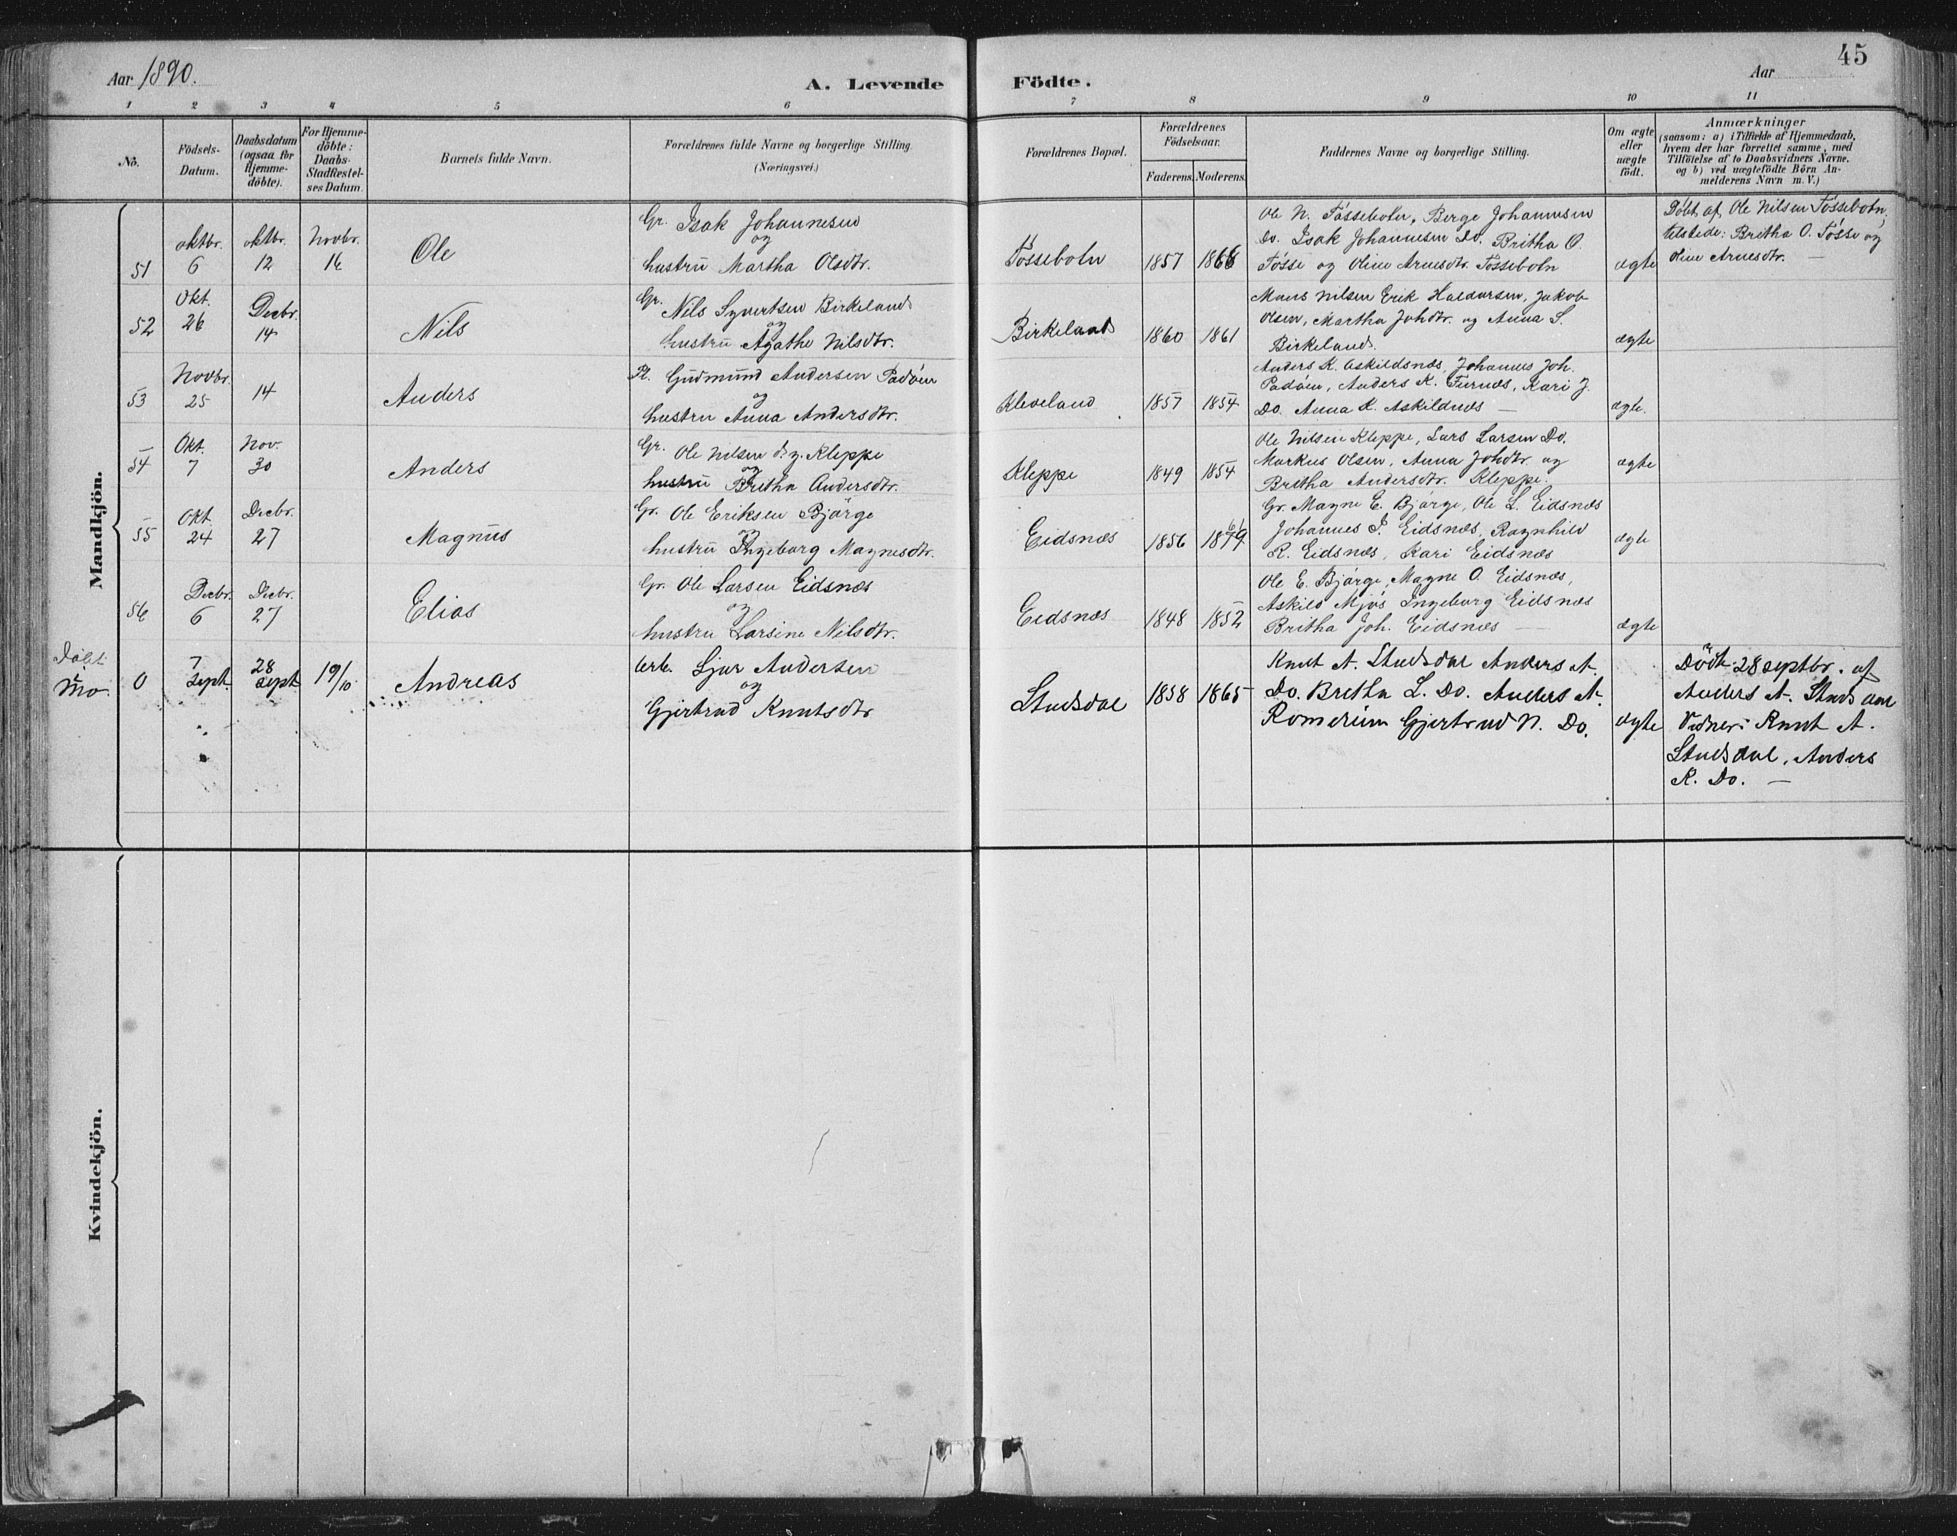 Aar 1890.
A. Levende Födte.
Aar
45
1 2 3 4 5 6 7 8 9 10 11
No.
Födsels-
Datum.
Daabsdatum
(ogsaa for
Hjemme-
döbte).
For Hjemme-
döbte:
Daabs-
Stadfæstel-
ses Datum.
Barnets fulde Navn.
Forældrenes fulde Navne og borgerlige Stilling.
(Næringsvei.)
Forældrenes Bopæl.
Forældrenes
Födselsaar.
Faderens. Moderens.
Faddernes Navne og borgerlige Stilling.
Om ægte
eller
uægte
födt.
Anmærkninger
(saasom: a) i Tilfælde af Hjemmedaab,
hvem der har forrettet samme, med
Tilföielse af to Daabsvidners Navne.
og b) ved uægtefödte Börn An-
melderens Navn m. V.)
Mandkjön.
51
oktbr.
6
oktbr.
12
Novbr.
16
Ole
Gr. Isak Johannesen
og
hustru Martha Olsdtr.
Tössebotn
1857 1866
Ole N. Tössebotn, Berge Johannesen
Do. Isak Johannesen Do. Britha O.
Tösse og Oline Arnesdtr. Tössebotn
ægte
Döbt af Ole Nilsen Tössebotn,
tilstede: Britha O. Tösse og
Oline Arnesdtr. —
52
Okt.
26
Decbr.
14
Nils
Gr. Nils Syvertsen Birkeland
og
hustru Agathe Nilsdtr.
Birkeland
1860 1861
Mons Nilsen Erik Haldorsen, Jakob
Olsen, Martha Johdtr. og Anna S.
Birkeland.
ægte
53
Novbr.
25
14
Anders
Pl. Gudmund Andersen Padöen
og
hustru Anna Andersdtr.
Kleveland
1857 1854
Anders K. Askildsnæs, Johannes Joh.
Padöen, Anders K. Furnæs, Kari J.
Do. Anna K. Askildnæs —
ægte.
54
Okt.
7
Nov.
30
Anders
Gr. Ole Nilsen d.y. Kleppe
og
hustru Britha Andersdtr.
Kleppe
1849 1854
Ole Nilsen Kleppe, Lars Larsen Do.
Markus Olsen, Anna Johdtr. og
Britha Andersdtr. Kleppe.
ægte
55
Okt
24
Decbr.
27
Magnus
Gr. Ole Eriksen Björge
og
hustru Ingeborg Magnesdtr.
Eidsnæs
1856
Gr. Magne E. Björge, Ole L. Eidsnæs
Johannes J. Eidsnæs, Ragnhild
R. Eidsnæs, Kari Eidsnæs
ægte
56
Decbr.
6
Decbr.
27
Elias
Gr. Ole Larsen Eidsnæs
og
hustru Larsine Nilsdtr.
Eidsnæs
1848 1852
Ole E. Björge, Magne O. Eidsnæs,
Askild Mjös Ingeborg Eidsnæs
Britha Joh. Eidsnæs —
ægte
Döbt
Mo.
0
7
Sept.
28
Sept
19/10
Andreas
Sjur Andersen
og
Gjertrud Knutsdtr
Studsdal
1858 1865
Knut A. Studsdal Anders A.
Do. Britha L. Do. Anders A.
Romereim Gjertrud N. Do.
ægte
Döbt 28 septbr. af
Anders A. Studsdal
Vidner: Knut A.
Studsdal, Anders
K. Do. —
Kvindekjön.